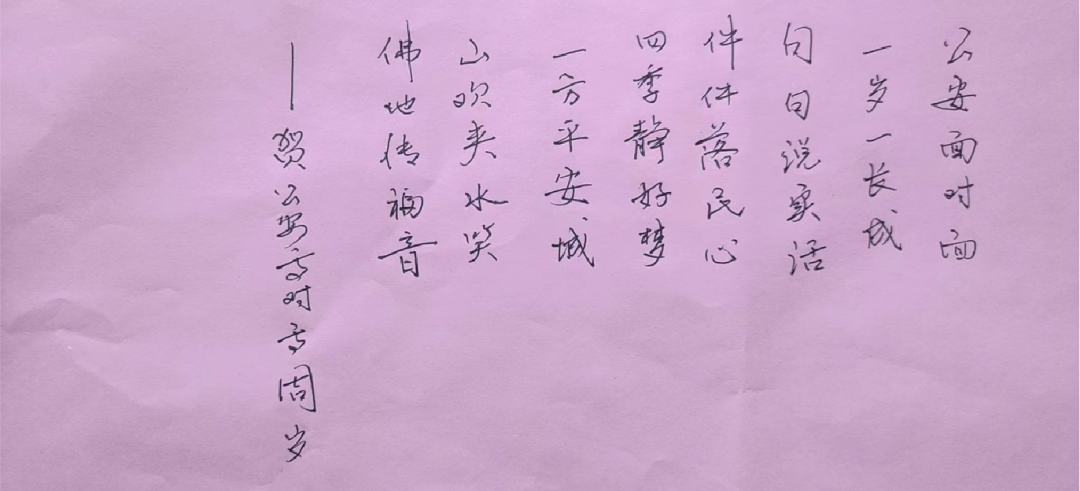 公安面对面
一岁一长成
句句说实话
件件落民心
四季静好梦
一方平安城
山欢夹水笑
佛地传福音
——贺公安面对面周岁